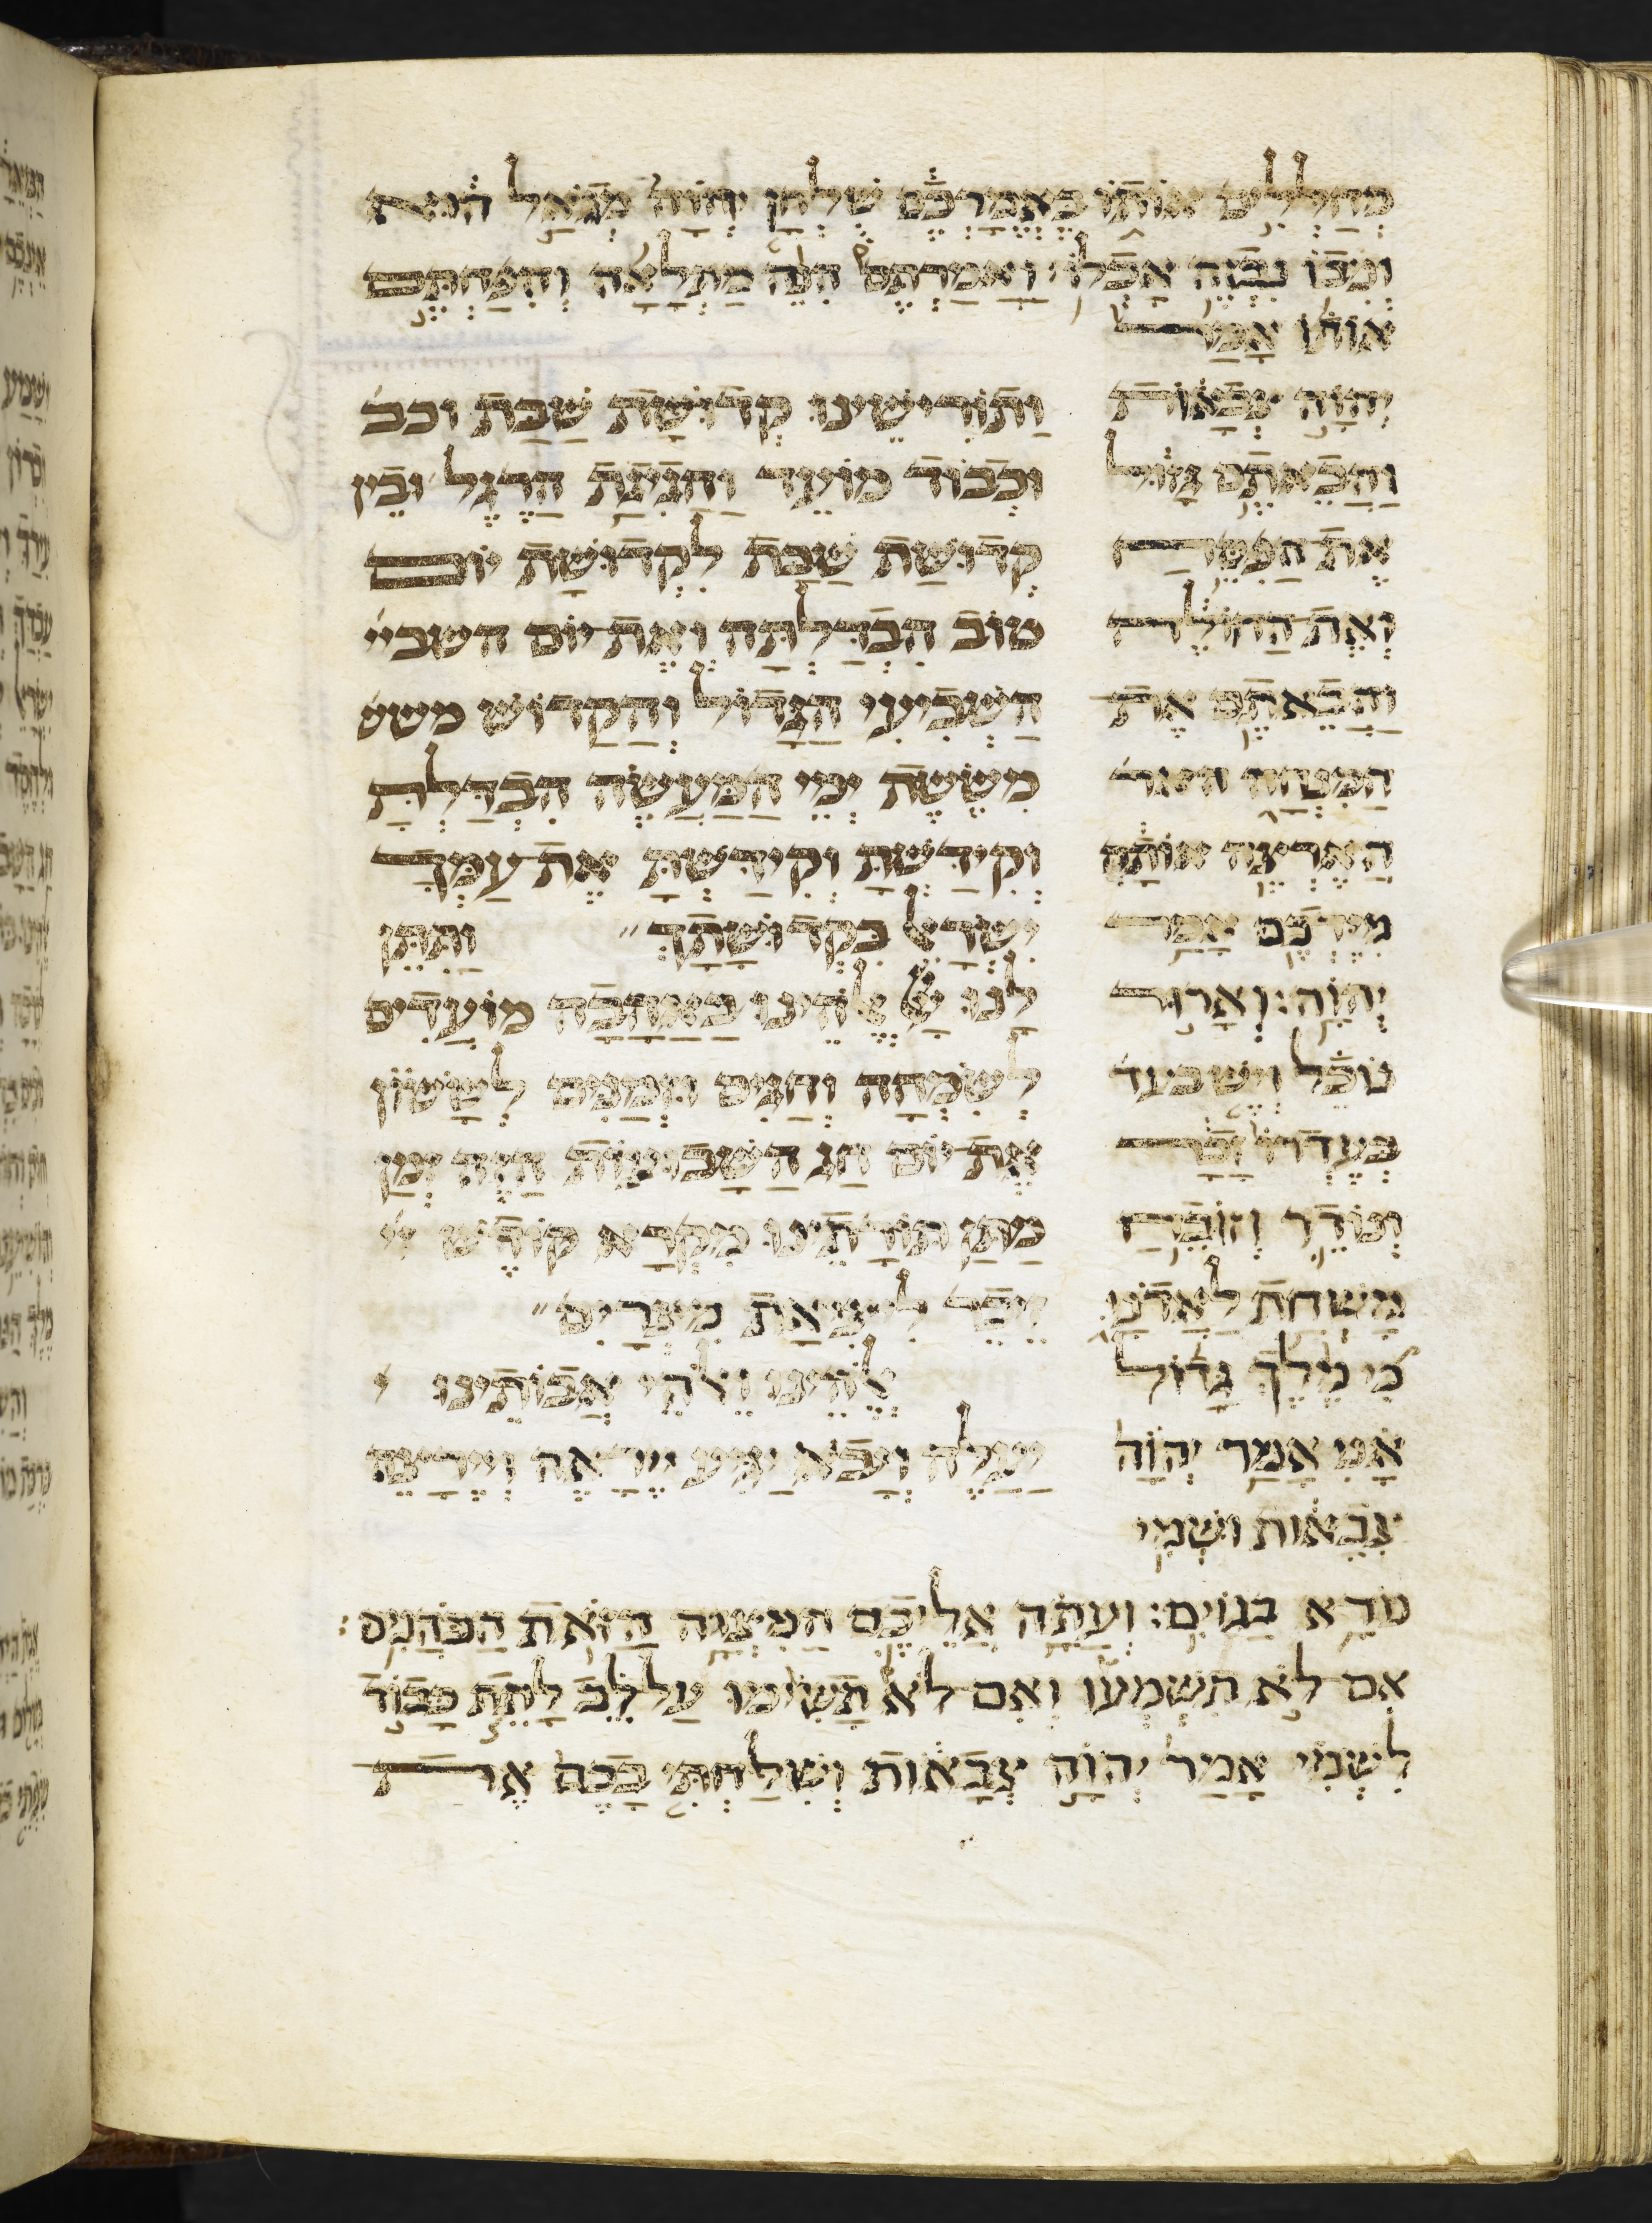 מחללים אותו באמרכם שלחן יהוה מגאל הוא
וניבו נבזה אכלו ואמרתם הנה מתלאה והפחתם
אותו אמר
יהוה צבאות
והבאתם גזול
את הפסח
ואת החולה
והבאתם את
המנחה
הארצה אותה
מידכם אמר
יהוה: וארור
נוכל ויש
בעדרו זכר
ונודר וזובח
משחת לאדני
כי מלך גדול
אני אמר יהוה
צבאות ושמי
נורא בגוים: ועתה אליכם המצוה הזאת הכהנים:
אם לא תשמעו ואם לא תשימו על לב לתת כבוד
לשמי אמר יהוה צבאות ושלחתי בכם את
ותורישנו קדושת שבת וכב
וכבוד מועד וחגיגת הרגל ובין
קדושת שבת לקדושת יום
טוב הבדלתה ואת יום השבי
השביעי הגדול והקדוש משש
מששת ימי המעשה הבדלת
וקידשת וקידשת את עמך
ישראל בקדושתך ותתן
לנו אלהינו באהבה מועדים
לשמחה וחגים וזמנים לששון
את יום חג השבועות הזה זמן
מתן תורתינו מקרא קודש
זכר ליציאת מצרים
אלהינו ואלהי אבותינו
יעלה ויבא יגיע יראה וירצה